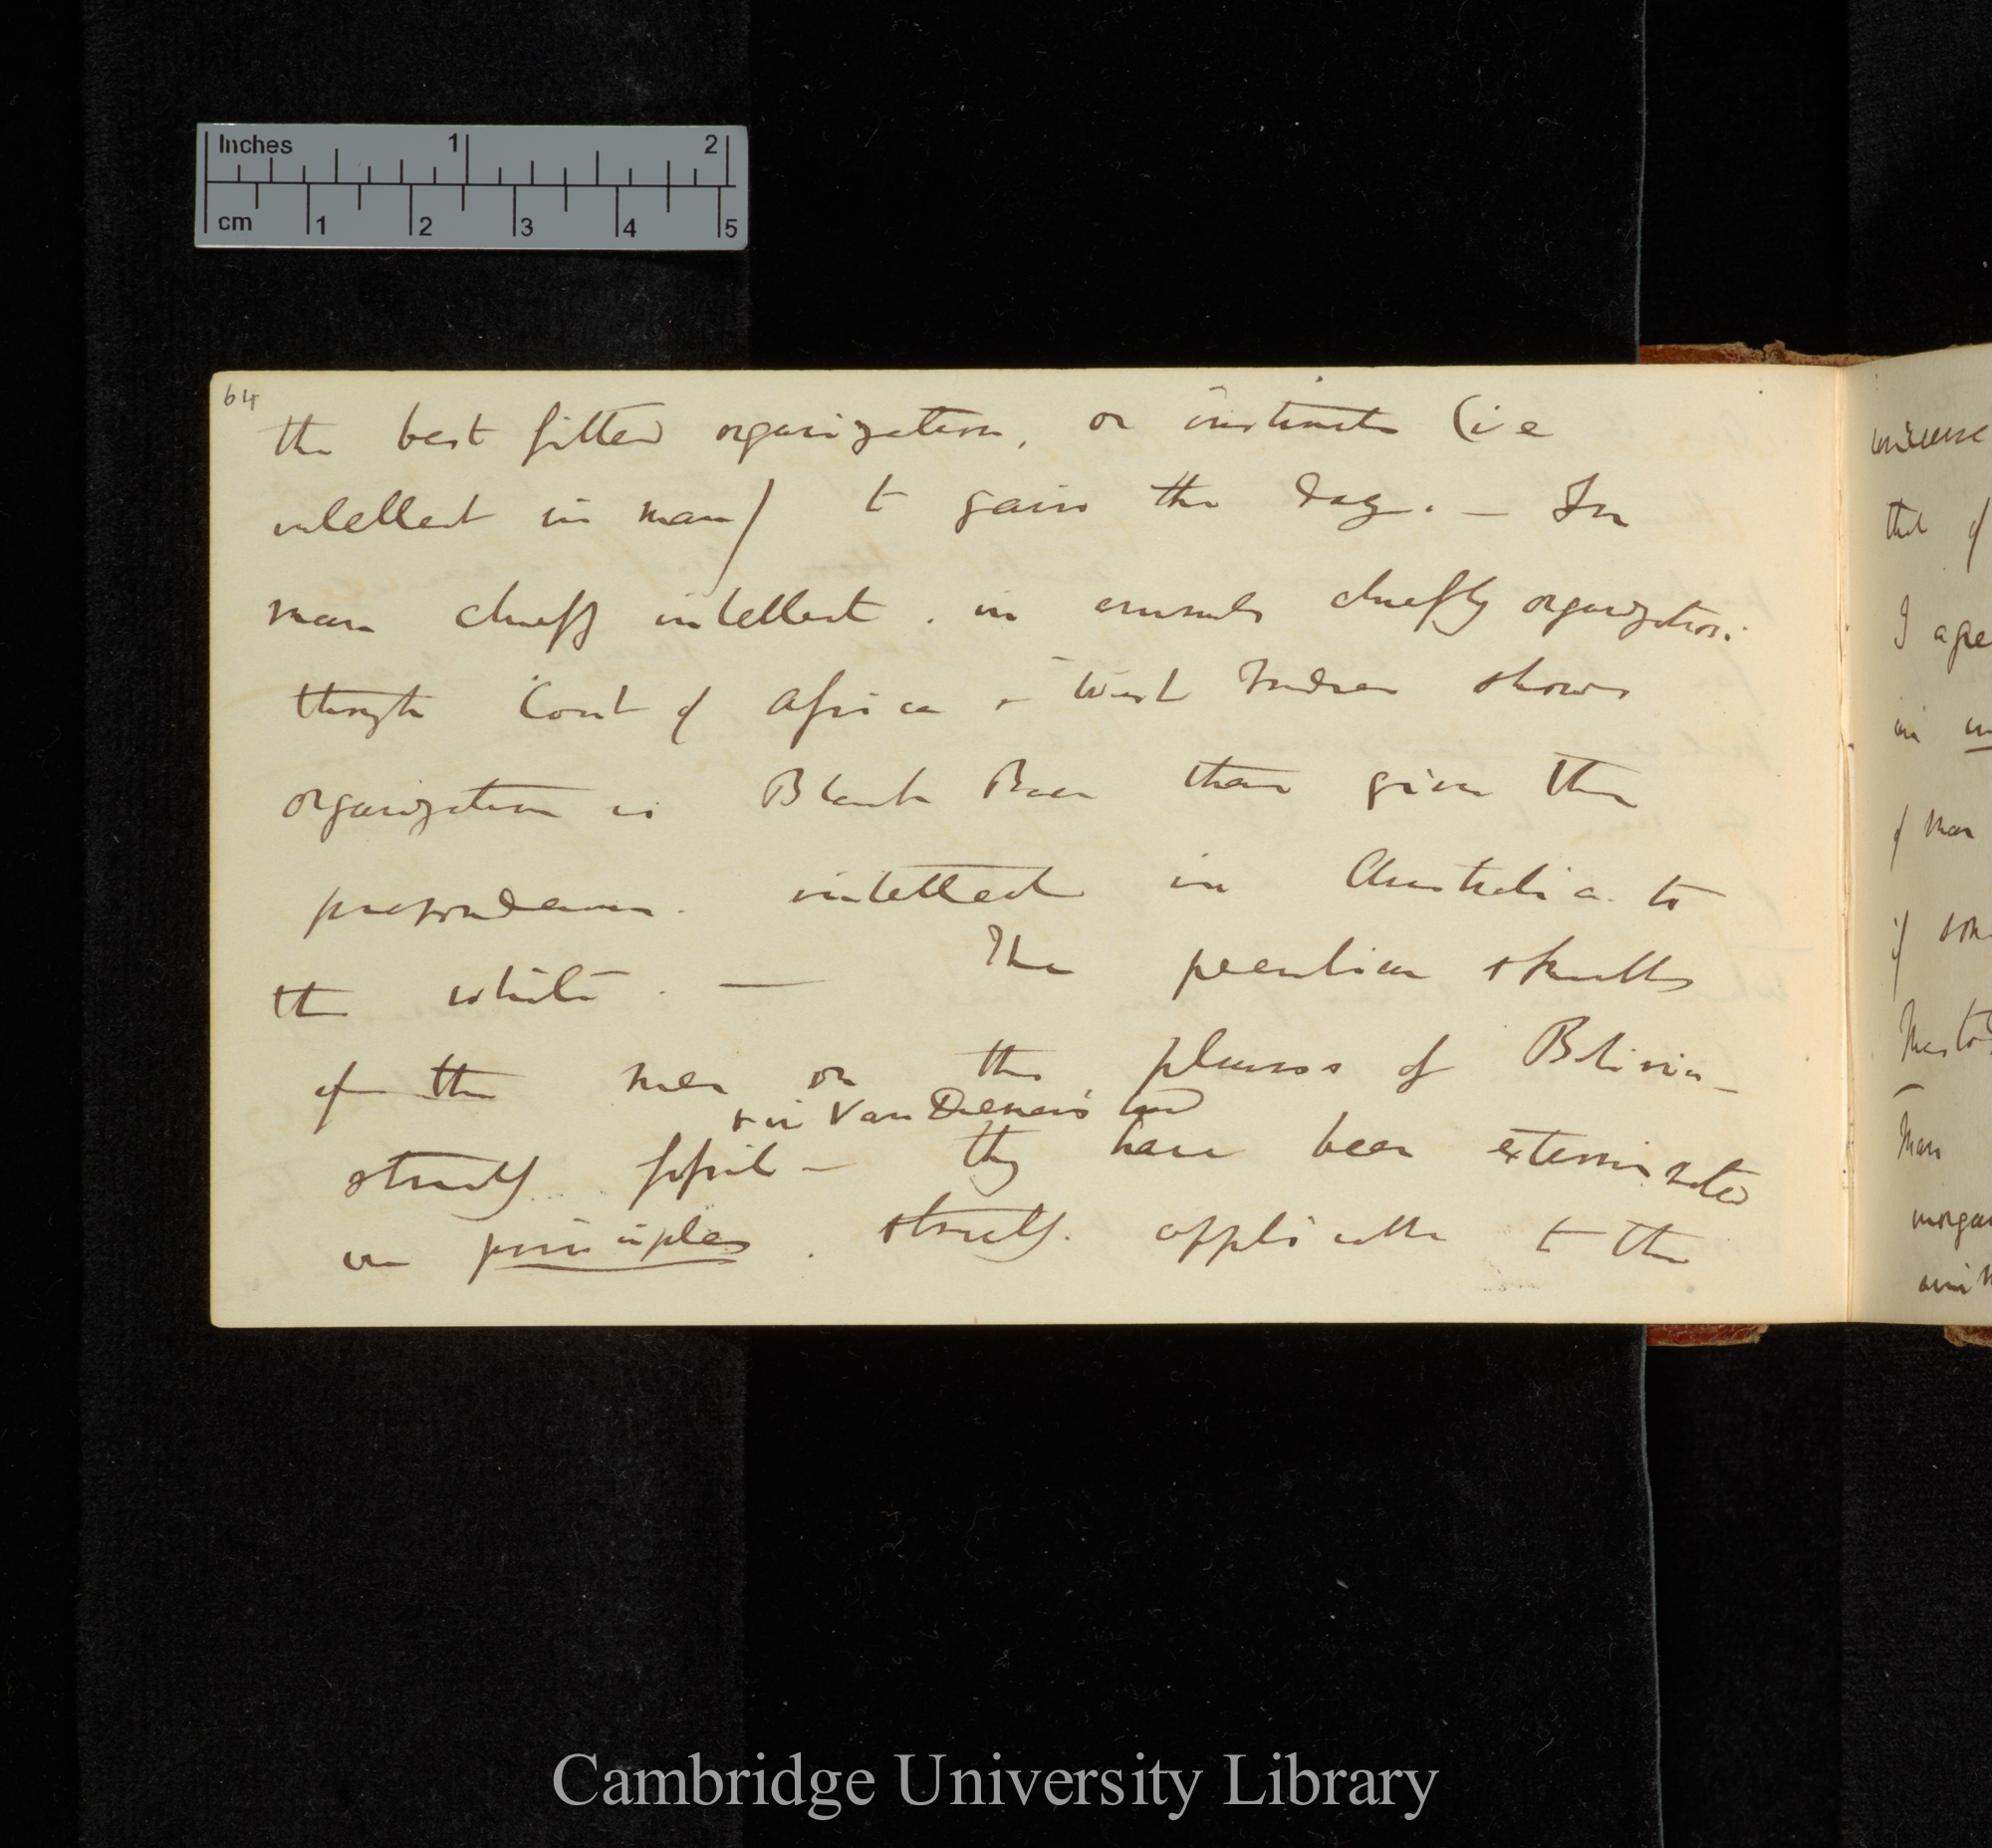 Inches 1 2
cm 1 2 3 4 5
64
the best fitted organization, or instincts (ie
intellect in man) to gain the day. — In
man chiefly intellect, in animals chiefly organization:
though Cont of Africa & West Indies shows
organization in Black Race there gives the
preponderance. intellect in Australia to
the white. — The peculiar skulls
of the men on the plains of Bolivia —
& in Van Diemen's land
strictly fossil — they have been exterminated
on principles. strictly applicable to the
universe
that of
in
of man
if
Man
Cambridge University Library